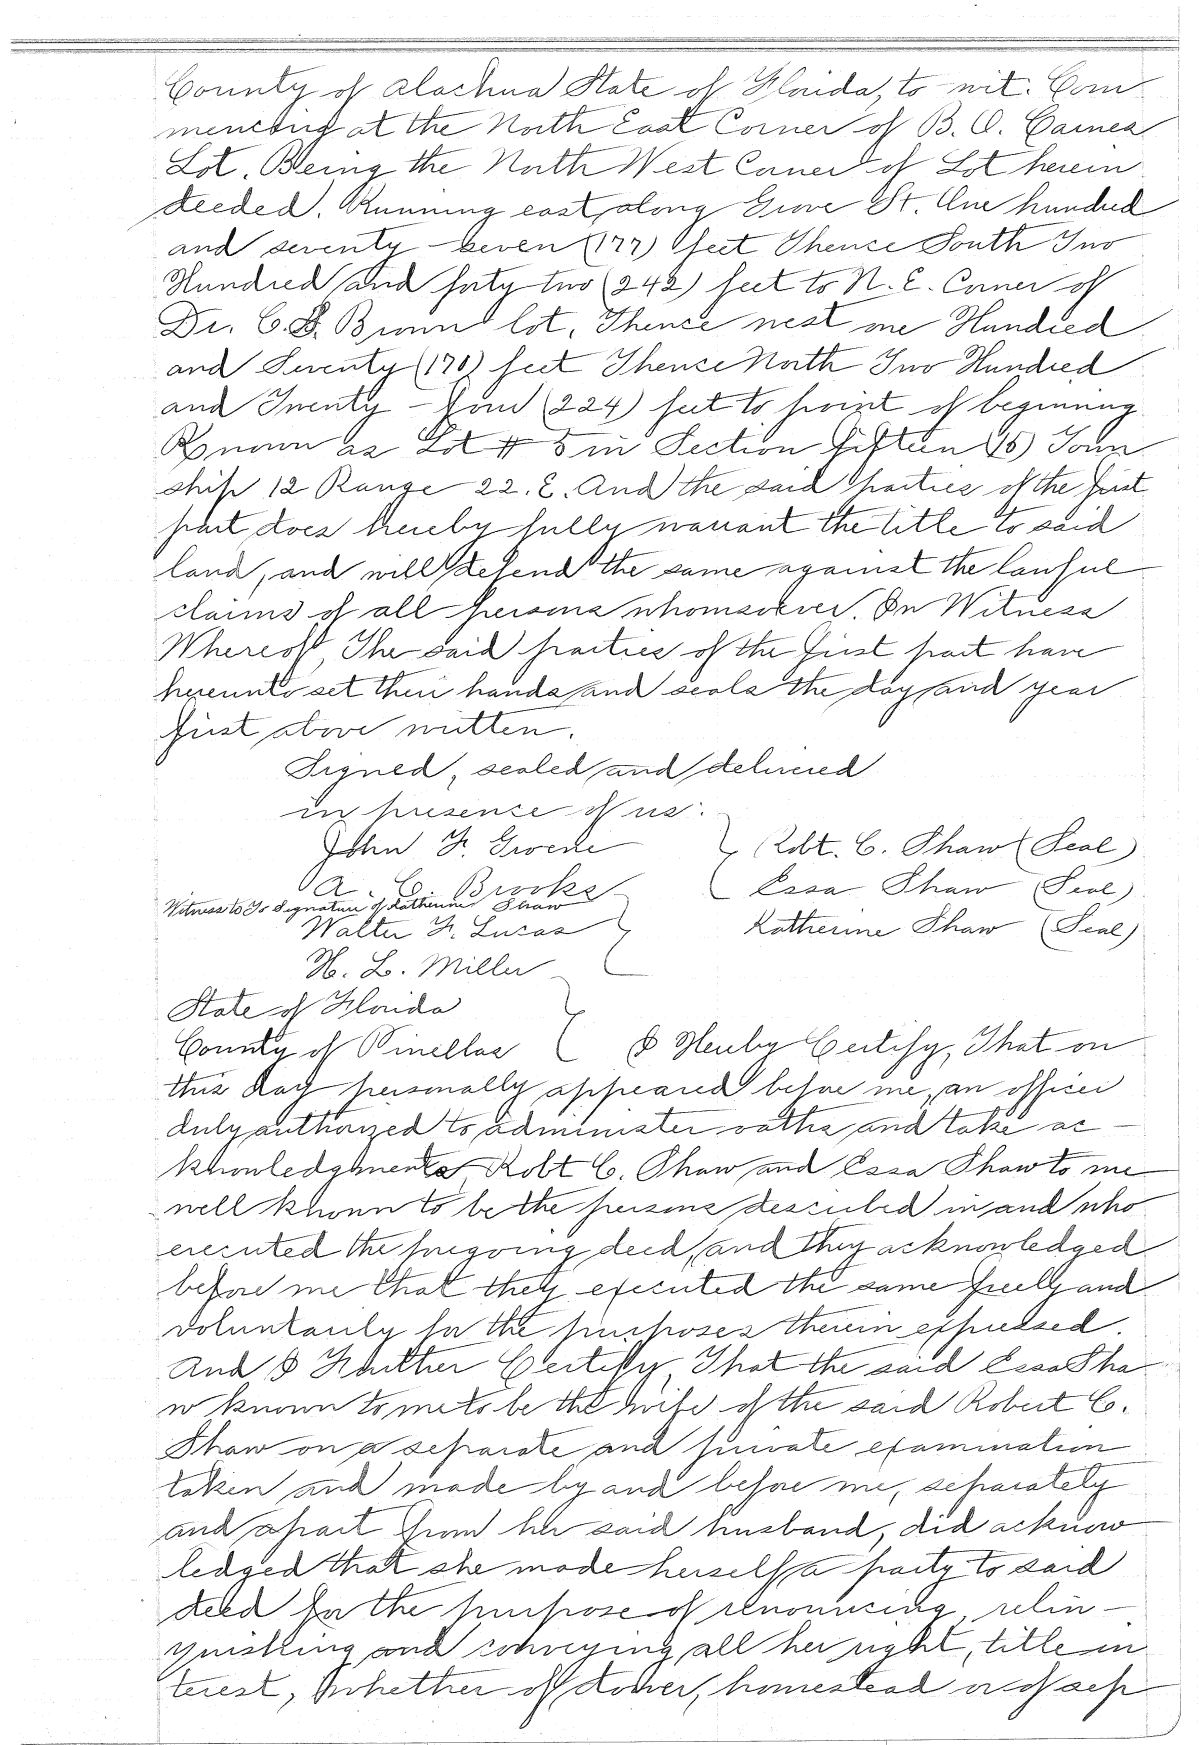 County of Alachua State of Florida, to wit: Com
mencing at the North East Corner of B. O. Carnes
Lot. Being the North West Corner of Lot herein
deeded. Running east along Grove St. One hundred
and seventy-seven (177) feet Thence South Two
Hundred and forty two (242) feet to N. E. Corner of
Dr. C. S. Brown lot, Thence west one Hundred
and Seventy (170) feet Thence North Two Hundred
and Twenty-four (224) feet to point of beginning
Known as Lot # 5 in Section fifteen (15) Town
ship 12 Range 22. E. And the said parties of the first
part does hereby fully warrant the title to said
land, and will defend the same against the lawful
claims of all persons whomsoever. In Witness
Whereof, The said parties of the first part have
hereunto set their hands and seals the day and year
first above written.
Signed, sealed and delivered
in presence of us:
John F. Greene } Robt. C. Shaw (Seal)
A. C. Brooks Essa Shaw (Seal)
Witness to To Signature of Katherine Shaw
Walter F. Lucas } Katherine Shaw (Seal)
H. L. Miller
State of Florida
County of Pinellas } I Hereby Certify, That on
this day personally appeared before me, an officer
duly authorized to administer oaths and take ac-
knowledgments, Robt C. Shaw and Essa Shaw to me
well known to be the persons described in and who
executed the foregoing deed, and they acknowledged
before me that they executed the same freely and
voluntarily for the purposes therein expressed.
And I Further Certify, That the said Essa Sha
w known to me to be the wife of the said Robert C.
Shaw on a separate and private examination
taken and made by and before me, separately
and apart from her said husband, did acknow
ledged that she made herself a party to said
deed for the purpose of renouncing, relin-
quishing and conveying all her right, title in
terest, whether of dower, homestead or of sep